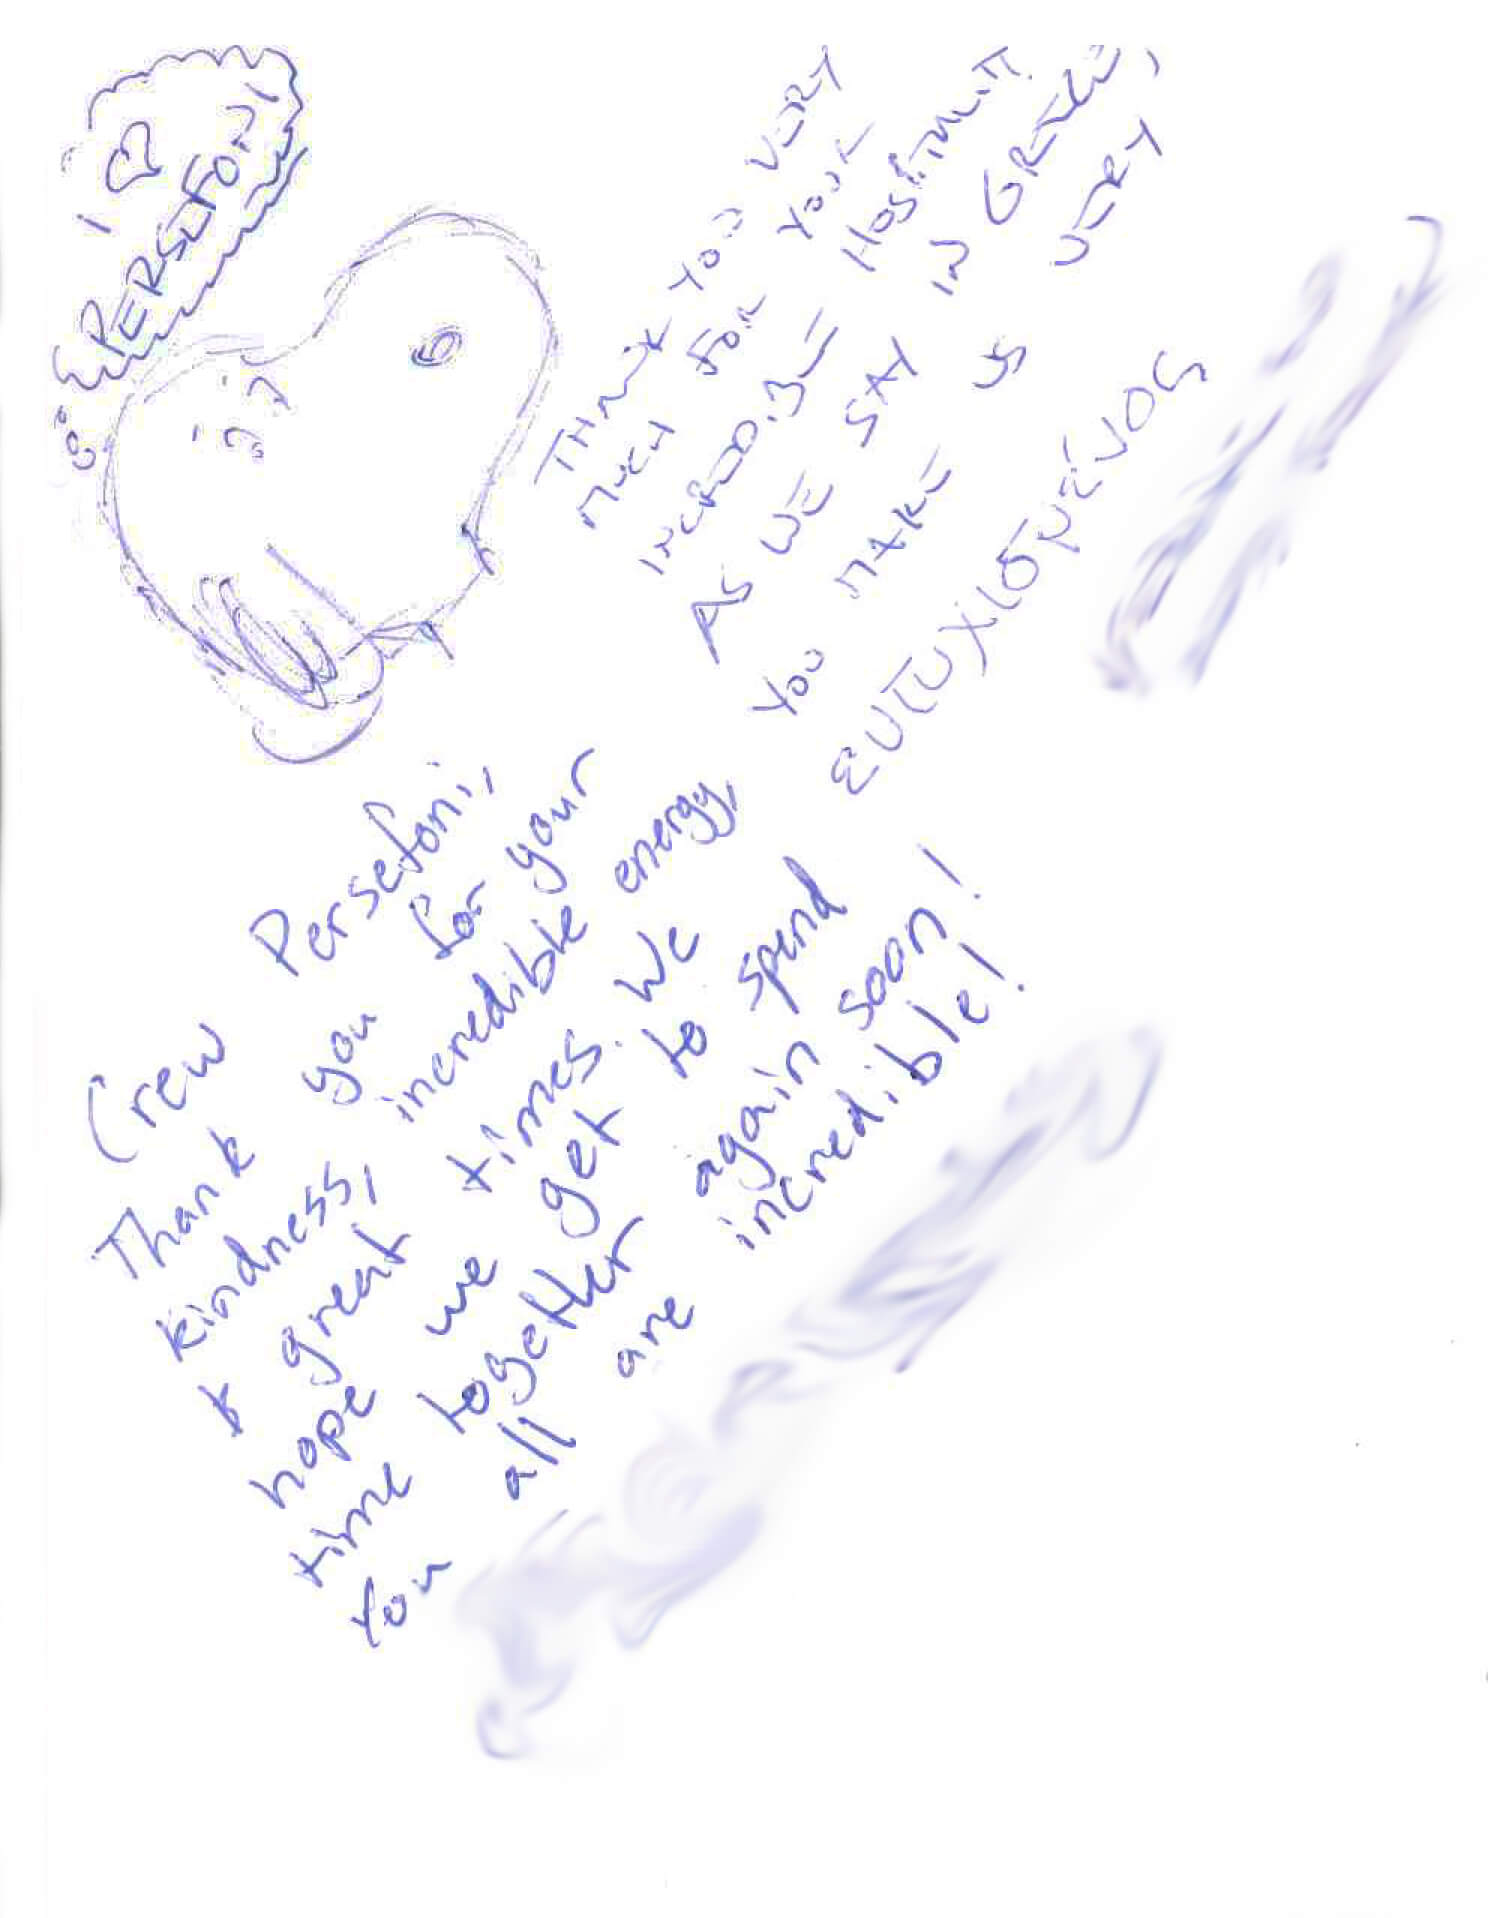 I ♡
PERSEFONI
THANK YOU VERY
MUCH FOR YOUR
INCREDIBLE HOSPITALITY.
AS WE SAY IN GREECE,
YOU MAKE US VERY
ευτυχισμένος
Crew Persefoni,
Thank you for your
kindness, incredible energy,
& great times. We
hope we get to spend
time together again soon!
You all are incredible!